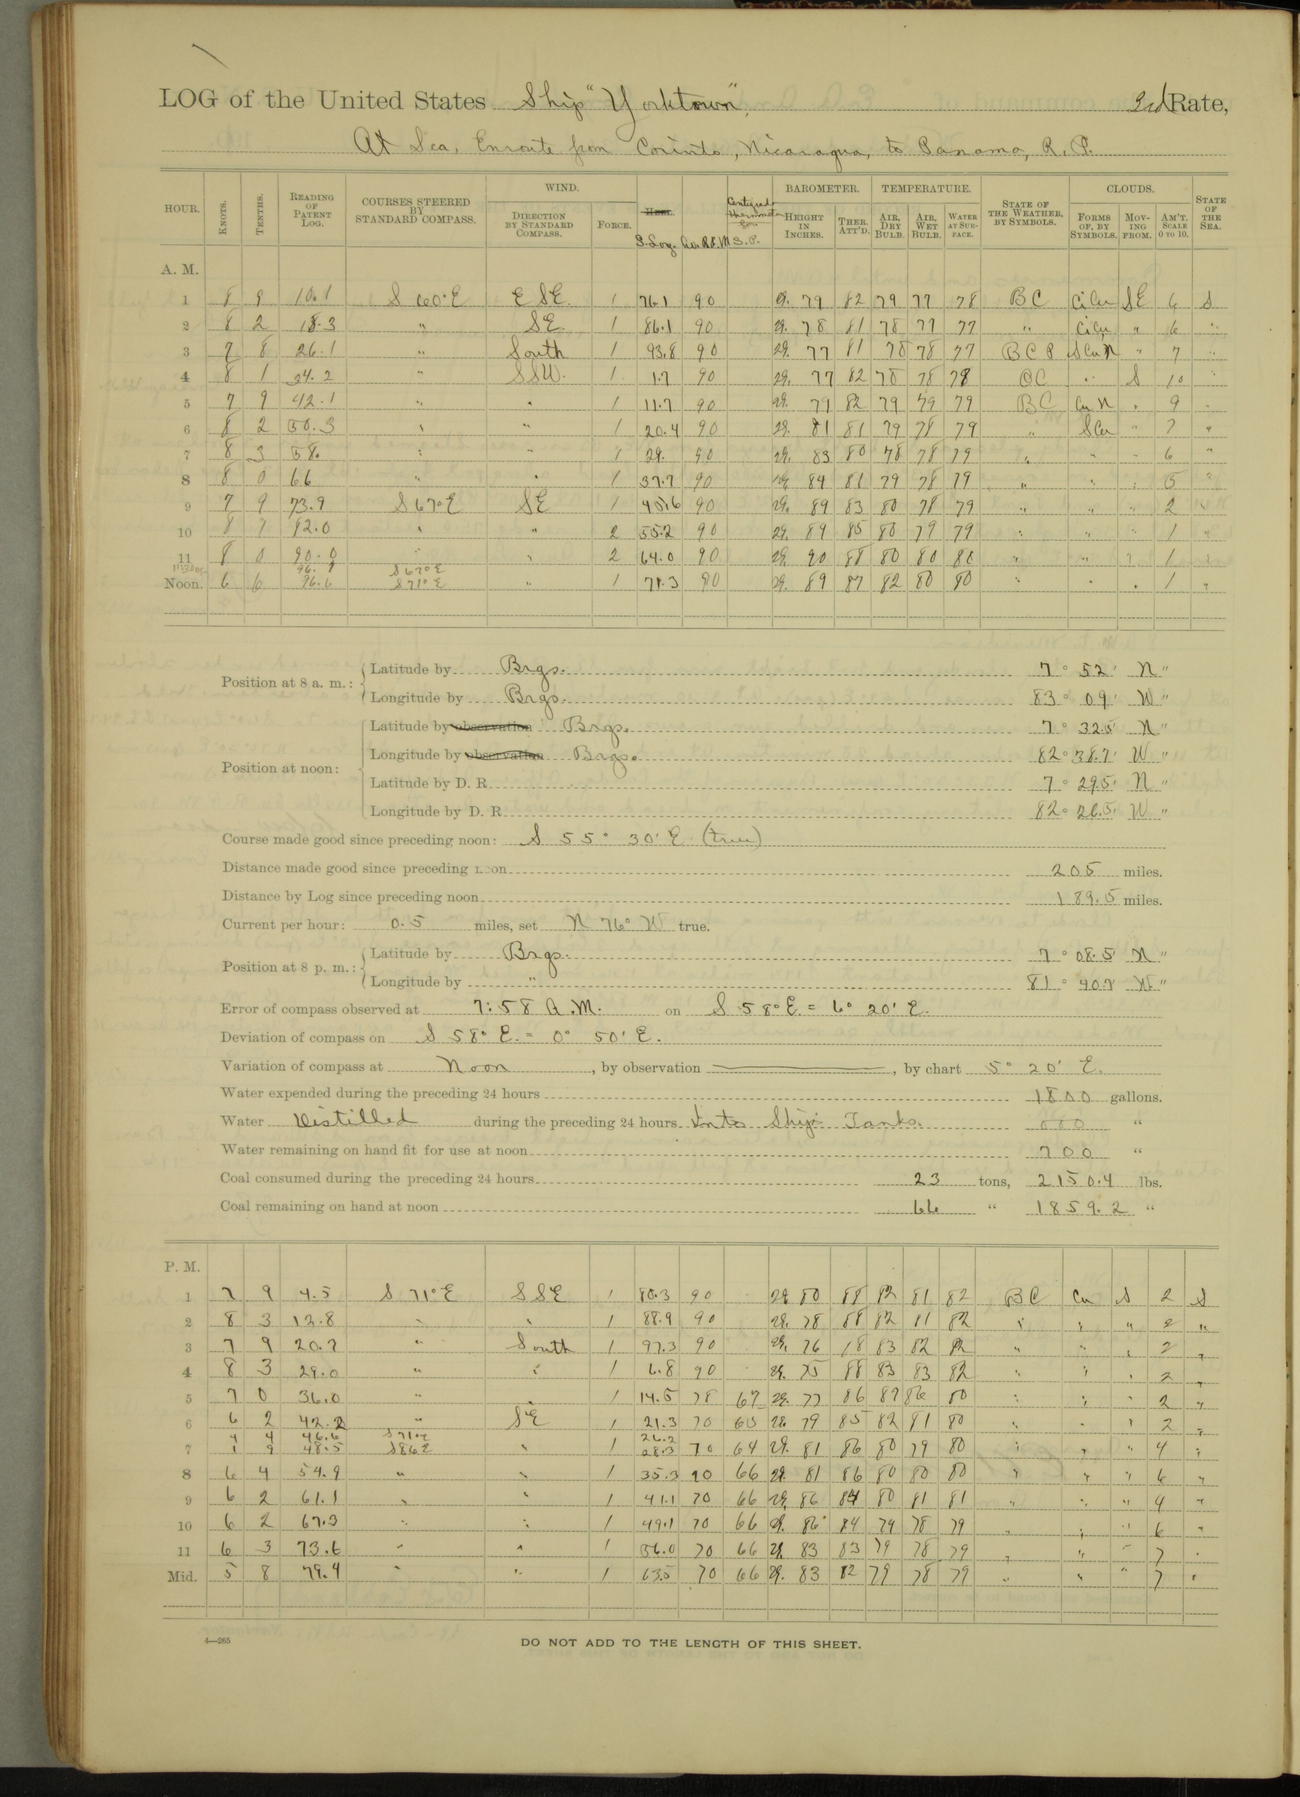 LOG of the United States Ship "Yorktown", 3rd Rate,
At Sea, Enroute from Corinto, Nicaragua, to Panama, R. P.
HOUR. KNOTS. TENTHS. READING OF PATENT LOG. COURSES STEERED BY STANDARD COMPASS. WIND. DIRECTION BY STANDARD COMPASS. FORCE. S. Log. Av. R.P.M. S.P. BAROMETER. HEIGHT IN INCHES. THER. ATT'D. TEMPERATURE. AIR, DRY BULB. AIR, WET BULB. WATER AT SURFACE. STATE OF THE WEATHER, BY SYMBOLS. CLOUDS. FORMS OF, BY SYMBOLS. MOVING FROM. AM'T. SCALE 0 TO 10. STATE OF THE SEA.
A. M.
1 8 9 10.1 S 60° E ESE 1 76.1 90 29. 79 82 79 77 78 BC CiCu SE 6 S
2 8 2 18.3 " SE 1 86.1 90 29. 78 81 78 77 77 " CiCu " 6 "
3 7 8 26.1 " South 1 93.8 90 29. 77 81 78 78 77 BCP SCuN " 7 "
4 8 1 34.2 " SSW. 1 1.7 90 29. 77 82 78 78 78 OC " S 10 "
5 7 9 42.1 " " 1 11.7 90 29. 79 82 79 79 79 BC CuN " 9 "
6 8 2 50.3 " " 1 20.4 90 29. 81 81 79 78 79 " SCu " 7 "
7 8 3 58. " " 1 29. 90 29. 83 80 78 78 79 " " " 6 "
8 8 0 66 " " 1 37.7 90 29. 84 81 79 78 79 " " " 5 "
9 7 9 73.9 S 67° E SE 1 45.6 90 29. 89 83 80 78 79 " " " 2 "
10 8 1 82.0 " " 2 55.2 90 29. 89 85 80 79 79 " " " 1 "
11 8 0 90.0 " " 2 64.0 90 29. 90 88 80 80 80 " " " 1 "
S 67° E
Noon. 6 6 96.6 S 71° E " 1 71.3 80 29. 89 87 82 80 80 " " " 1 "
Position at 8 a. m.: Latitude by Brgs. 7° 52' N "
Longitude by Brgs. 83° 09' W "
Position at noon: Latitude by observation Brgs. 7° 32.5' N "
Longitude by observation Brgs. 82° 38.7' W "
Latitude by D. R. 7° 29.5' N "
Longitude by D. R. 82° 26.5' W "
Course made good since preceding noon: S 55° 30' E (true)
Distance made good since preceding noon 205 miles.
Distance by Log since preceding noon 189.5 miles.
Current per hour: 0.5 miles, set N 76° W true.
Position at 8 p. m.: Latitude by Brgs. 7° 08.5' N "
Longitude by " 81° 40.7' W "
Error of compass observed at 7:58 A.M. on S 58° E. = 6° 20' E.
Deviation of compass on S 58° E. = 0° 50' E.
Variation of compass at Noon, by observation, by chart 5° 20' E.
Water expended during the preceding 24 hours 1800 gallons.
Water Distilled during the preceding 24 hours Into Ship's Tanks. 000 "
Water remaining on hand fit for use at noon 700 "
Coal consumed during the preceding 24 hours 23 tons, 2150.4 lbs.
Coal remaining on hand at noon 66 " 1859.2 "
P. M.
1 7 9 4.5 S 71° E SSE 1 80.3 90 29. 80 88 82 81 82 BC Cu S 2 S
2 8 3 12.8 " " 1 88.9 90 29. 78 88 82 81 82 " " " 2 "
3 7 9 20.7 " South 1 97.3 90 29. 76 88 83 82 82 " " " 2 "
4 8 3 29.0 " " 1 6.8 90 29. 75 88 83 83 82 " " " 2 "
5 7 0 36.0 " 1 14.5 78 67 29. 77 86 87 86 80 " " " 2 "
6 6 2 42.2 " SE 1 21.3 70 65 29. 79 85 82 81 80 " " " 2 "
4 4 46.6 S 71° E 26.2
7 1 9 48.5 S 86 E " 1 28.3 70 64 29. 81 86 80 79 80 " " " 4 "
8 6 4 54.9 " " 1 35.3 70 66 29. 81 86 80 80 80 " " " 6 "
9 6 2 61.1 " " 1 41.1 70 66 29. 86 84 80 81 81 " " " 4 "
10 6 2 67.3 " " 1 49.1 70 66 29. 86 84 79 78 79 " " " 6 "
11 6 3 73.6 " " 1 56.0 70 66 29. 83 83 79 78 79 " " " 7 "
Mid. 5 8 79.4 " " 1 63.5 70 66 29. 83 82 79 78 79 " " " 7 "
4—265
DO NOT ADD TO THE LENGTH OF THIS SHEET.